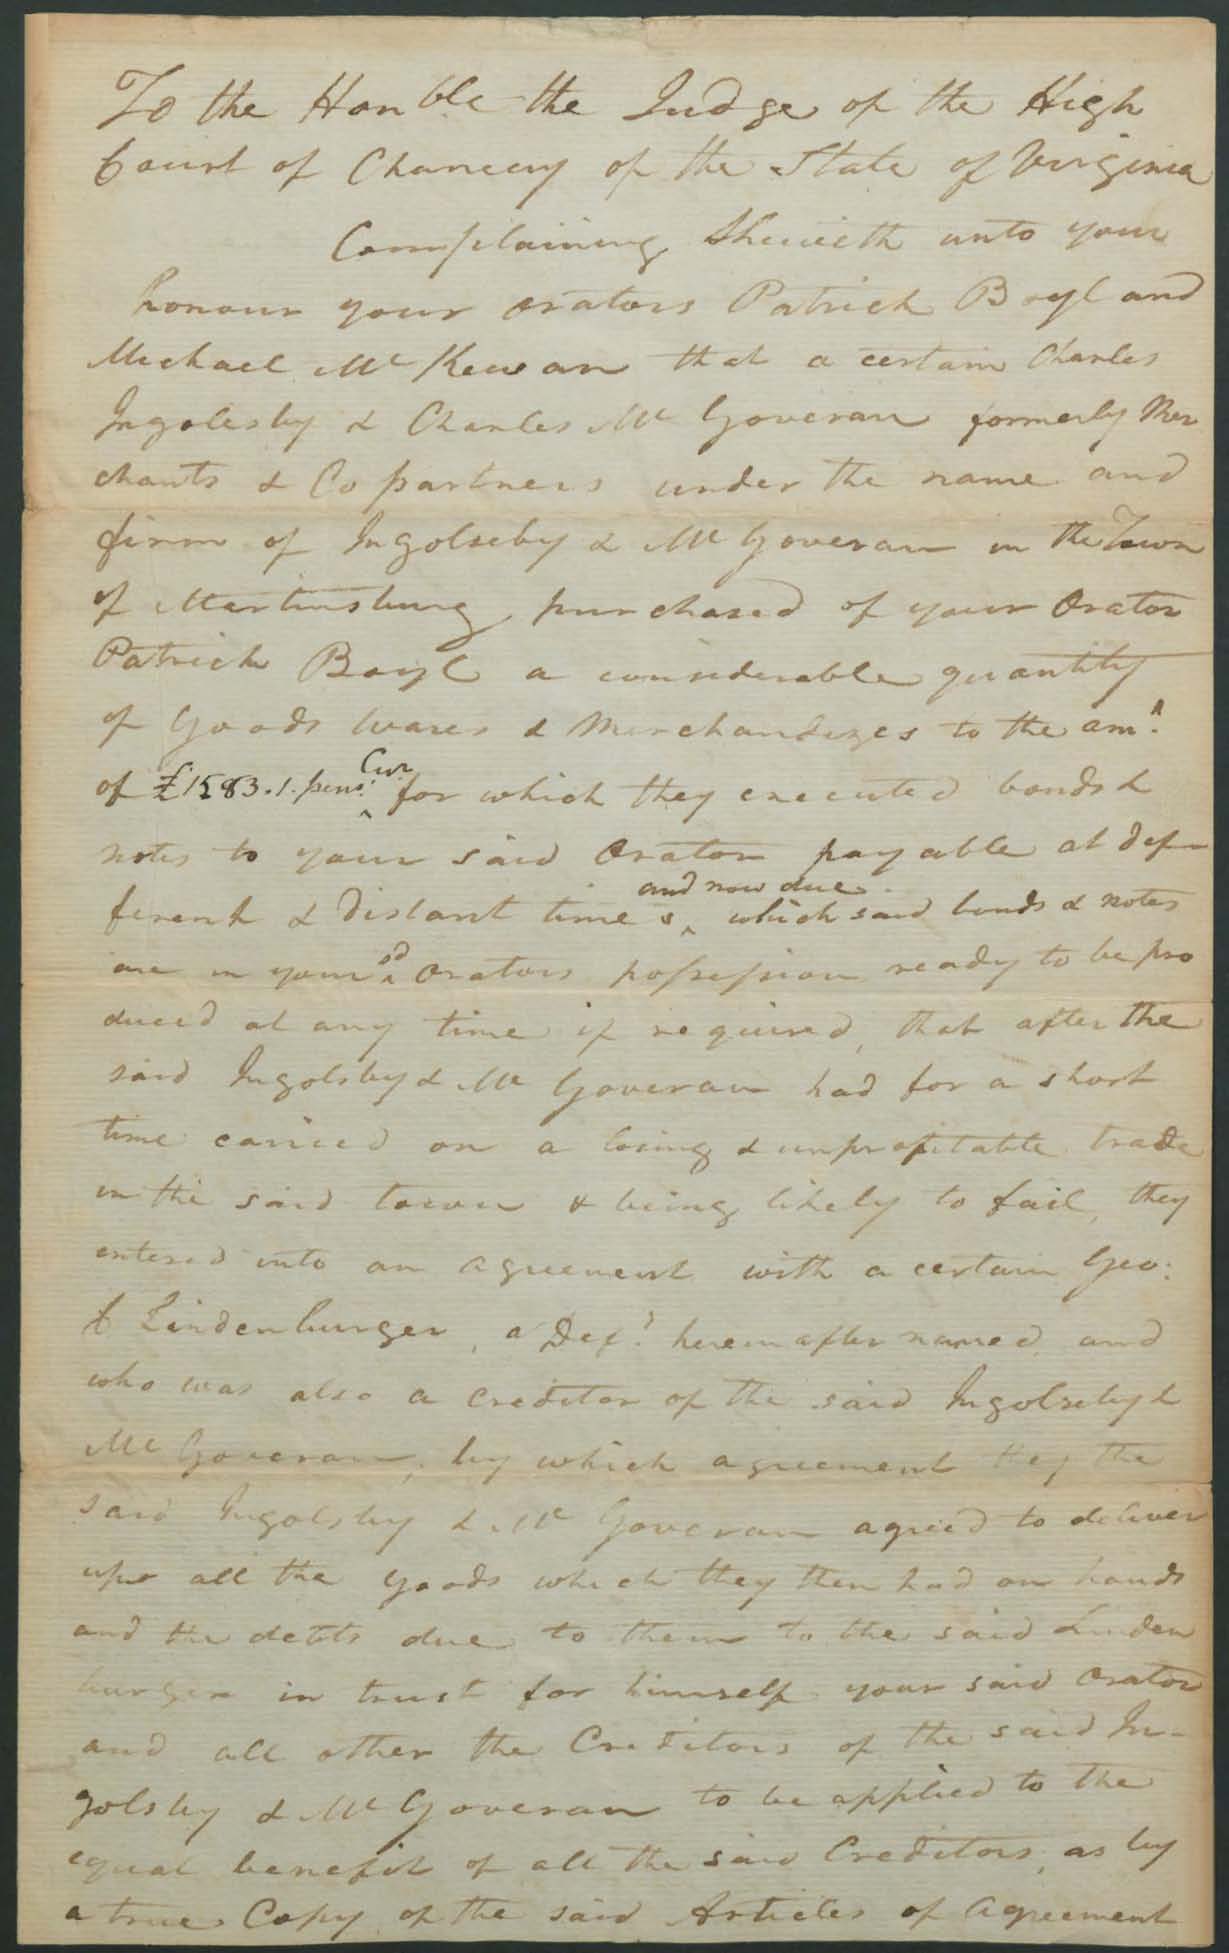 To the Honble the Judge of the High
Court of Chancery of the State of Virginia
Complaining Sheweth unto your
honour your orators Patrick Boyl and
Michael Mc Kewan that a certain Charles
Ingolesby & Charles Mc Goveran formerly Mer
chants & Copartners under the name and
firm of Ingolseby & Mc Goveran in the Town
of Martinsburg purchased of your Orator
Patrick Boyl a considerable quantity
of Goods Wares & Merchandizes to the amt.
of £1583.1. Curr for which they executed bonds &
notes to your said Orator payable at def-
ferent & distant times and now due which said bonds & notes
are in your sd Orators possession ready to be pro
duced at any time if required, that after the
said Ingolsby & Mc Goveran had for a short
time caried on a losing & unprofitable trade
in the said town & being likely to fail, they
entered into an agreement with a certain Geo:
Lindenburger, a Deft. hereinafter named and
who was also a creditor of the said Ingolseby &
Mc Goveran, by which agreement they the
said Ingolsby & Mc Goveran agreed to deliver
up all the goods which they then had on hands
and the debts due to them to the said Linden
burger in trust for himself your said Orator
and all other the Creditors of the said In-
golsby & Mc Goveran to be applied to the
equal benefit of all the said Creditors, as by
a true Copy of the said Articles of Agreement